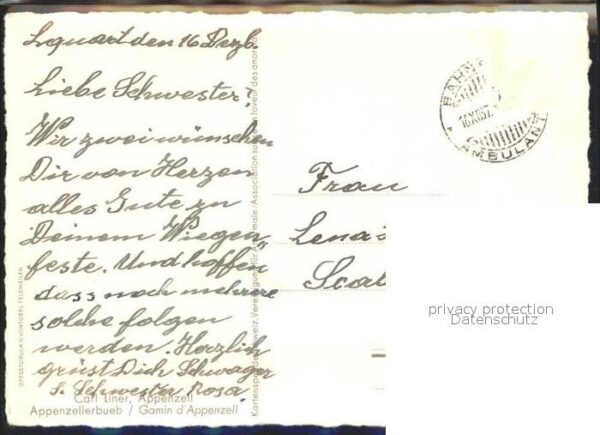 Lquart den 16 Dezb.
Liebe Schwester!
Wir zwei wünschen
Dir von Herzen
alles Gute zu
Deinem Wiegen„
feste. Und hoffen
dass noch mehrere
solche folgen
werden. Herzlich
grüst Dich Schwager
s. Schwester Rosa.
Carl Liner, Appenzell
Appenzellerbueb / Gamin d'Appenzell
OFFSETDRUCK H. VONTOBEL FELDMEILEN
Kartenspende Schweiz. Vereinigung für Anormale
BAHNP
16.XII.57
AMBULANT
Frau
Lena
Sca
privacy protection
Datenschutz